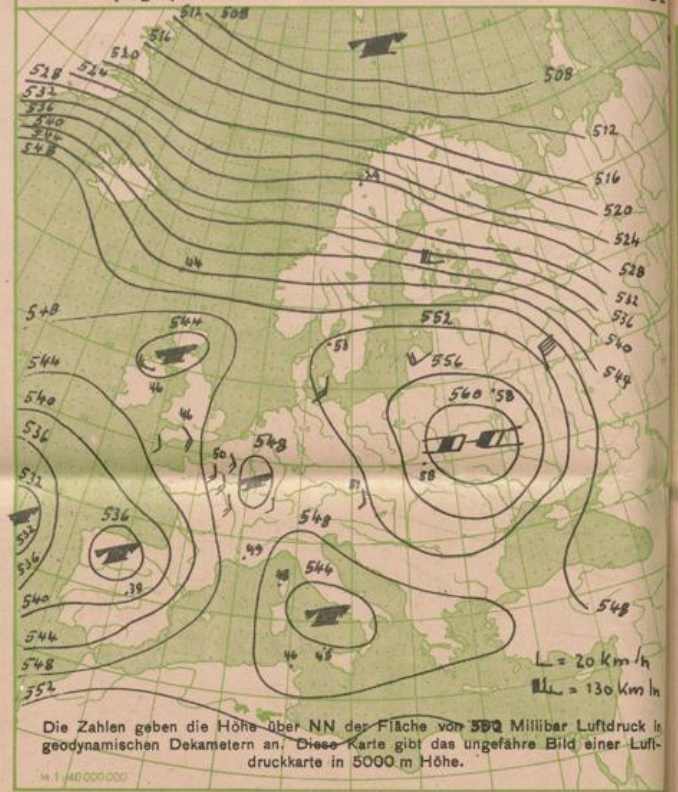 512 508
516
520
524
528
532
536
540
544
548
508
512
516
520
524
528
532
536
540
544
44
548
544
46
46
552
53
556
560 58
58
51
50
548
49
544
540
536
532
532
536
536
39
540
544
548
552
548
48
544
46 45
548
= 20 Km/h
= 130 Km/h
Die Zahlen geben die Höhe über NN der Fläche von Millibar Luftdruck in
geodynamischen Dekametern an. Diese Karte gibt das ungefähre Bild einer Luft-
druckkarte in 5000 m Höhe.
M. 1:40000000